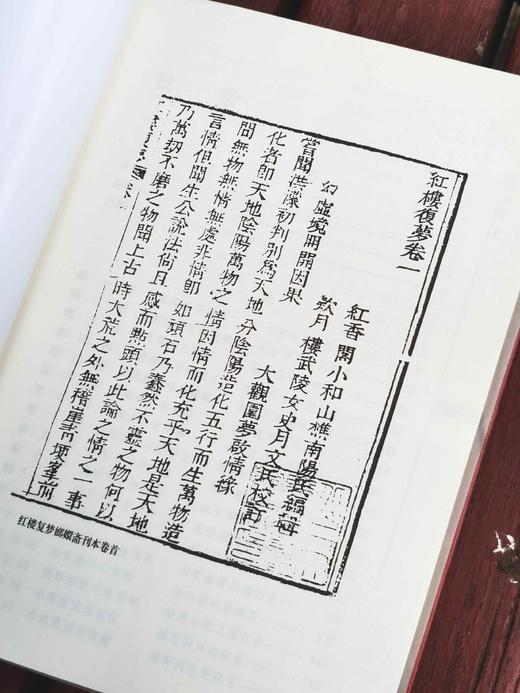 紅樓復夢卷一
紅香閣小和山樵南陽氏編輯
欵月樓武陵女史月文氏校訂
幻虛境冊開因果　大觀園夢啟情緣
嘗聞洪濛初判別為天地分陰陽造化五行而生萬物造
化名即天地陰陽萬物之情因情而化充乎天地是天地
間無物無情無處非情即如頑石乃蠢然不靈之物何以
言情但聞生公說法倘且感而點頭以此論之情之一事
乃萬劫不磨之物聞上古時大荒之外無稽崖青埂峯前
红楼复梦嫏嬛斋刊本卷首